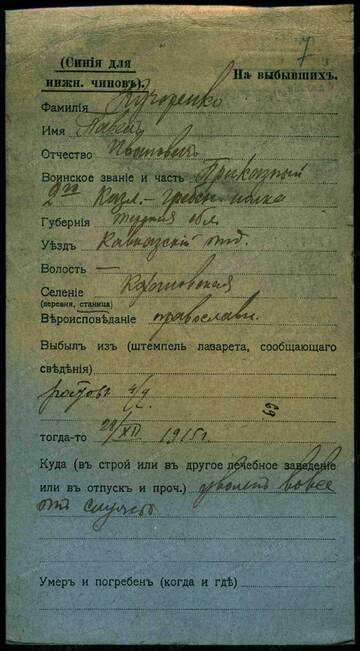 7
(Синія для
нижн. чиновъ).
На выбывшихъ.
Фамилія Кучеренко
Имя Павелъ
Отчество Ивановичъ
Воинское званіе и часть Приказный
2го Кизл.-Гребен. полка
Губернія Терская обл.
Уѣздъ Кавказскій отд.
Волость —
Селеніе
(деревня, станица)
Вѣроисповѣданіе православн.
Выбылъ изъ (штемпель лазарета, сообщающаго
свѣдѣнія)
69
тогда-то 28/XII 1915 г.
Куда (въ строй или въ другое лечебное заведеніе
или въ отпускъ и проч.) уволенъ вовсе
отъ службы
Умеръ и погребенъ (когда и гдѣ)